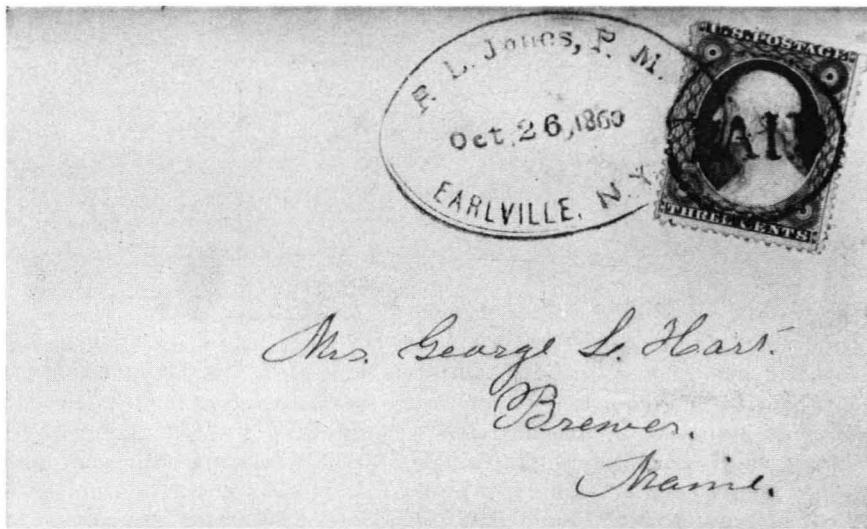 L. Jones, P. M.
Oct. 26, 1860
EARLVILLE, N. Y.
U.S. POSTAGE
PAID
THREE CENTS
Mrs. George L. Hart.
Brewer.
Maine.